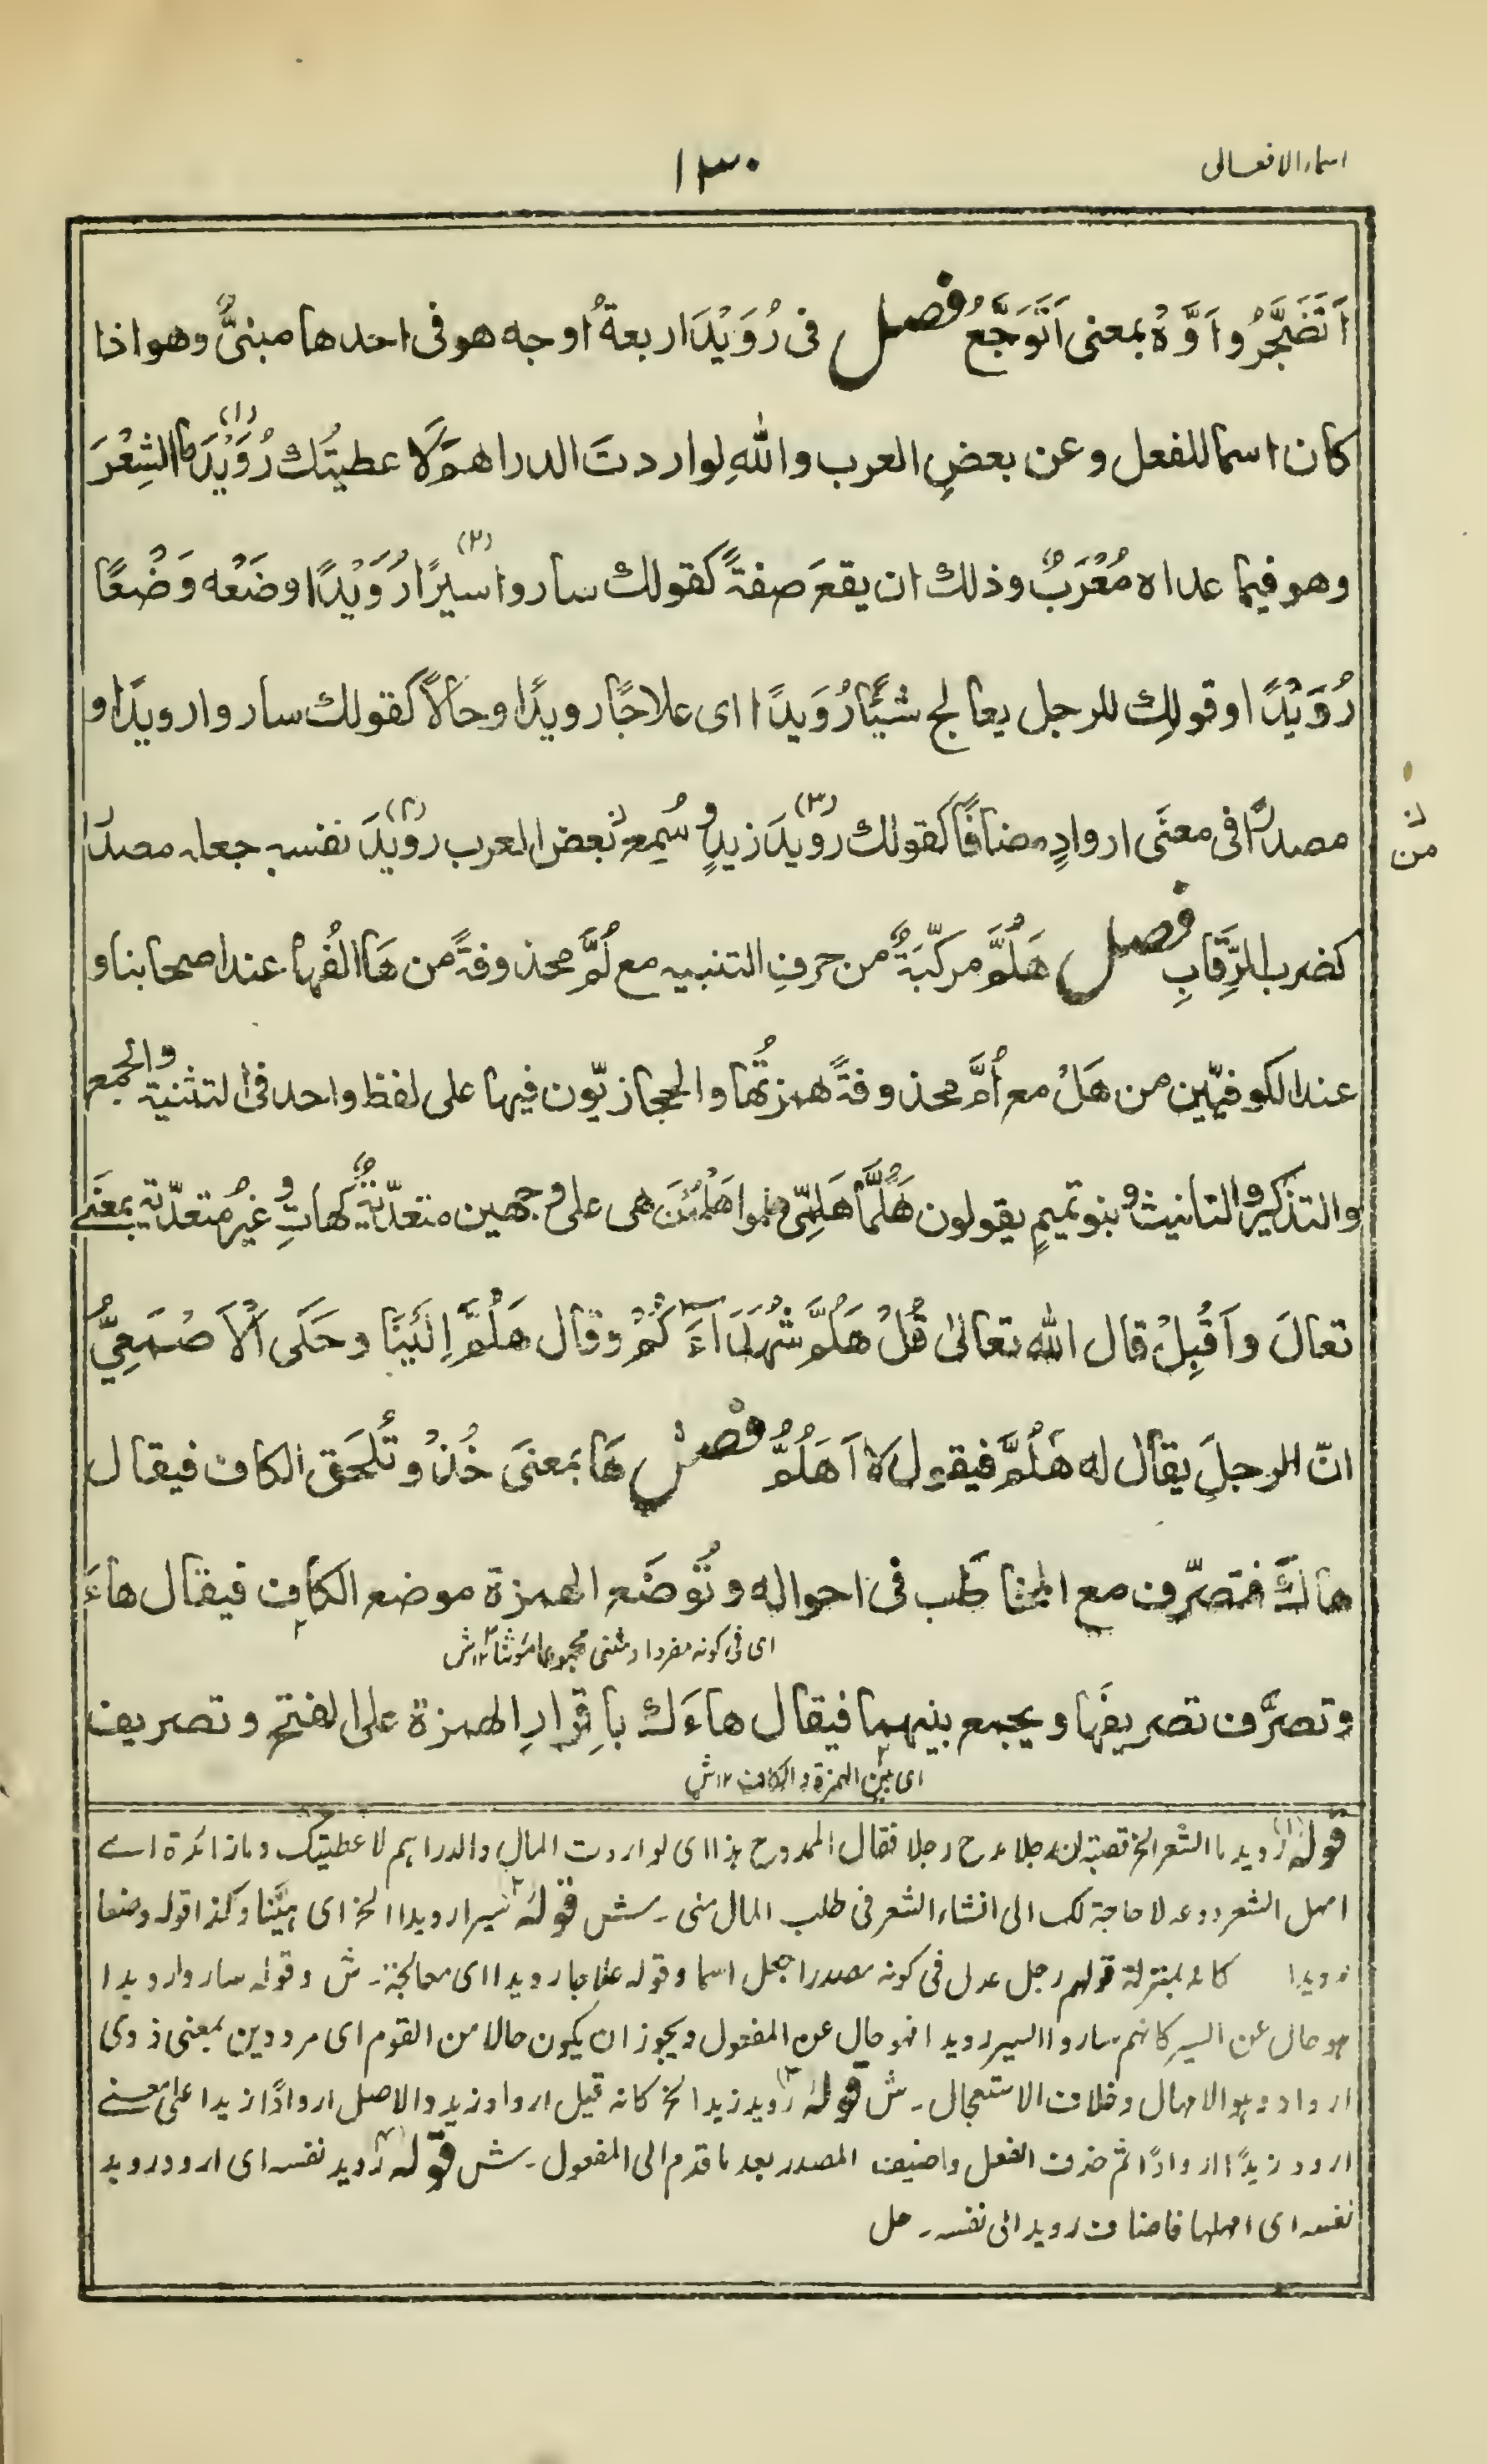 اسماء الافعال
۱۳۰
اَتَضَجَّرُ واَوَّهْ بمعنى اَتَوَجَّعُ فصل فى رُوَيْدَ اربعةُ اوجه هو فى احدها مبنىٌّ وهو اذا
كان اسما للفعل وعن بعضِ العرب واللهِ لو اردتَ الدراهمَ لَاَعطيتُك رُوَيْدَ(۱) ما الشِعْرَ
وهو فيما عداه مُعْرَبٌ وذلك ان يقعَ صفةً كقولك ساروا سيرًا(۲) رُوَيْدًا وضَعْه وَضْعًا
رُوَيْدًا وقولِك للرجل يعالج شيئًا رُوَيدًا اى علاجًا رويدًا وحالاً كقولك ساروا رويدًا و
مصدرًا فى معنَى اروادٍ مضافًا كقولك رُوَيدَ(۳) زيدٍ وسُمِعَ بعض العرب رُوَيدَ(۴) نفسِه جعله مصدرًا
ن
من
كضرب الرِّقَابِ فصل هَلُمَّ مركّبةٌ من حرفِ التنبيه مع لُمَّ محذوفةً من هَا الفُها عند اصحابنا و
عند الكوفيّين من هَلْ مع اُمَّ محذوفةً همزتُها والحجازيّون فيها على لفظ واحد فى التثنية والجمع
والتذكير والتانيث وبنو تميمٍ يقولون هَلُمَّا هَلُمِّى هلموا هَلْمُمْنَ هى على وجهين متعدّيةٌ كهاتِ وغيرُ متعدّية بمعنَى
تعالَ واَقْبِلْ قال الله تعالىٰ قُلْ هَلُمَّ شُهَدَآءَكُمْ وقال هَلُمَّ اِلَيْنَا وحَكَى اَلْاَصْمَعِيُّ
انّ الرجلَ يقال له هَلُمَّ فيقول لَا اَهَلُمُّ فصلْ هَا بمعنَى خُذْ وتُلحَق الكاف فيقال
هاكَ فتصرّف مع المخاطَب فى احواله وتُوضَع الهمزة موضع الكاف فيقال هاءَ
اى فى كونه مفردا و مثنى مجموعا مؤنثا ۱۲ش
وتصرَّف تصريفَها ويجمع بينهما فيقال هاءَك بِاِقرارِ الهمزة على الفتح وتصريف
اى بين الهمزة والكاف ۱۲ش
قوله(۱) رويد ما الشعر الخ قصته ان رجلا مدح رجلا فقال الممدوح هذا اى لو اردت المال والدراهم لاعطيتك وما زائدة اے
امهل الشعر ودعه لا حاجة لك الى انشاء الشعر فى طلب المال منى۔ ش قوله۲ سيرا رويدا الخ اى هيّنا وكذا قوله وضعا
رويدا كانه بمنزلة قولهم رجل عدل فى كونه مصدرا جعل اسما وقوله علاجا رويدا اى معالجة۔ ش وقوله ساروا رويدا
هو حال عن السير كانهم ساروا السير رويدا فهو حال عن المفعول ويجوز ان يكون حالا من القوم اى مرودين بمعنى ذوى
ارواد وهو الامهال وخلاف الاستعجال۔ ش قوله(۳) رويد زيد الخ كانه قيل ارواد زيد والاصل اروادًا زيدا على معنے
ارود زيدًا اروادًا ثم حذف الفعل واضيف المصدر بعد ما قدم الى المفعول۔ ش قوله۴ رويد نفسه اى ارود رويد
نفسه اى امهلها فاضاف رويد الى نفسه۔ حل